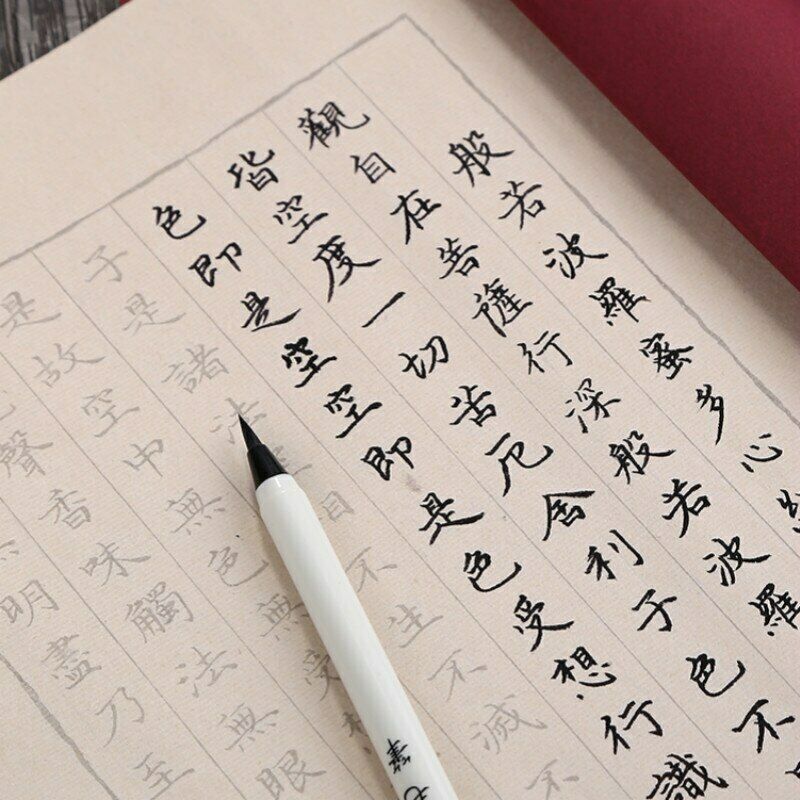 般若波羅蜜多心
觀自在菩薩行深般若波羅
皆空度一切苦厄舍利子色不
色即是空空即是色受想行識
子是諸法相不生不滅不
是故空中無色無受想
聲香味觸法無眼
明盡乃至